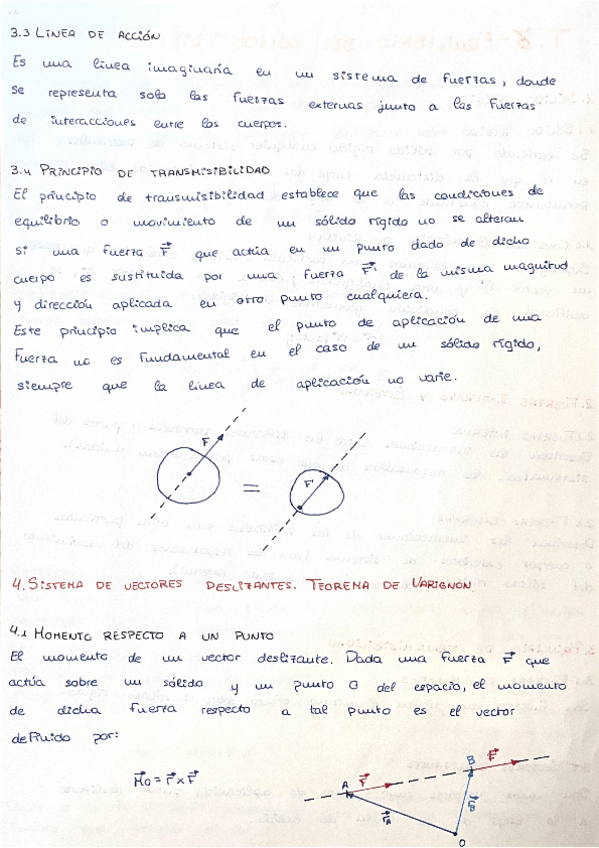 3.3 LÍNEA DE ACCIÓN
Es una línea imaginaria en un sistema de fuerzas, donde
se representa solo las fuerzas externas junto a las fuerzas
de interacciones entre los cuerpos.
3.4 PRINCIPIO DE TRANSMISIBILIDAD
El principio de transmisibilidad establece que las condiciones de
equilibrio o movimiento de un sólido rígido no se alteran
si una fuerza F⃗ que actúa en un punto dado de dicho
cuerpo es sustituida por una fuerza F⃗' de la misma magnitud
y dirección aplicada en otro punto cualquiera.
Este principio implica que el punto de aplicación de una
fuerza no es fundamental en el caso de un sólido rígido,
siempre que la línea de aplicación no varíe.
F
=
F'
4. SISTEMA DE VECTORES DESLIZANTES. TEOREMA DE VARIGNON
4.1 MOMENTO RESPECTO A UN PUNTO
El momento de un vector deslizante. Dada una fuerza F⃗ que
actúa sobre un sólido y un punto O del espacio, el momento
de dicha fuerza respecto a tal punto es el vector
definido por:
M⃗o = r⃗ x F⃗
A F⃗ B F⃗
r⃗A r⃗B
O